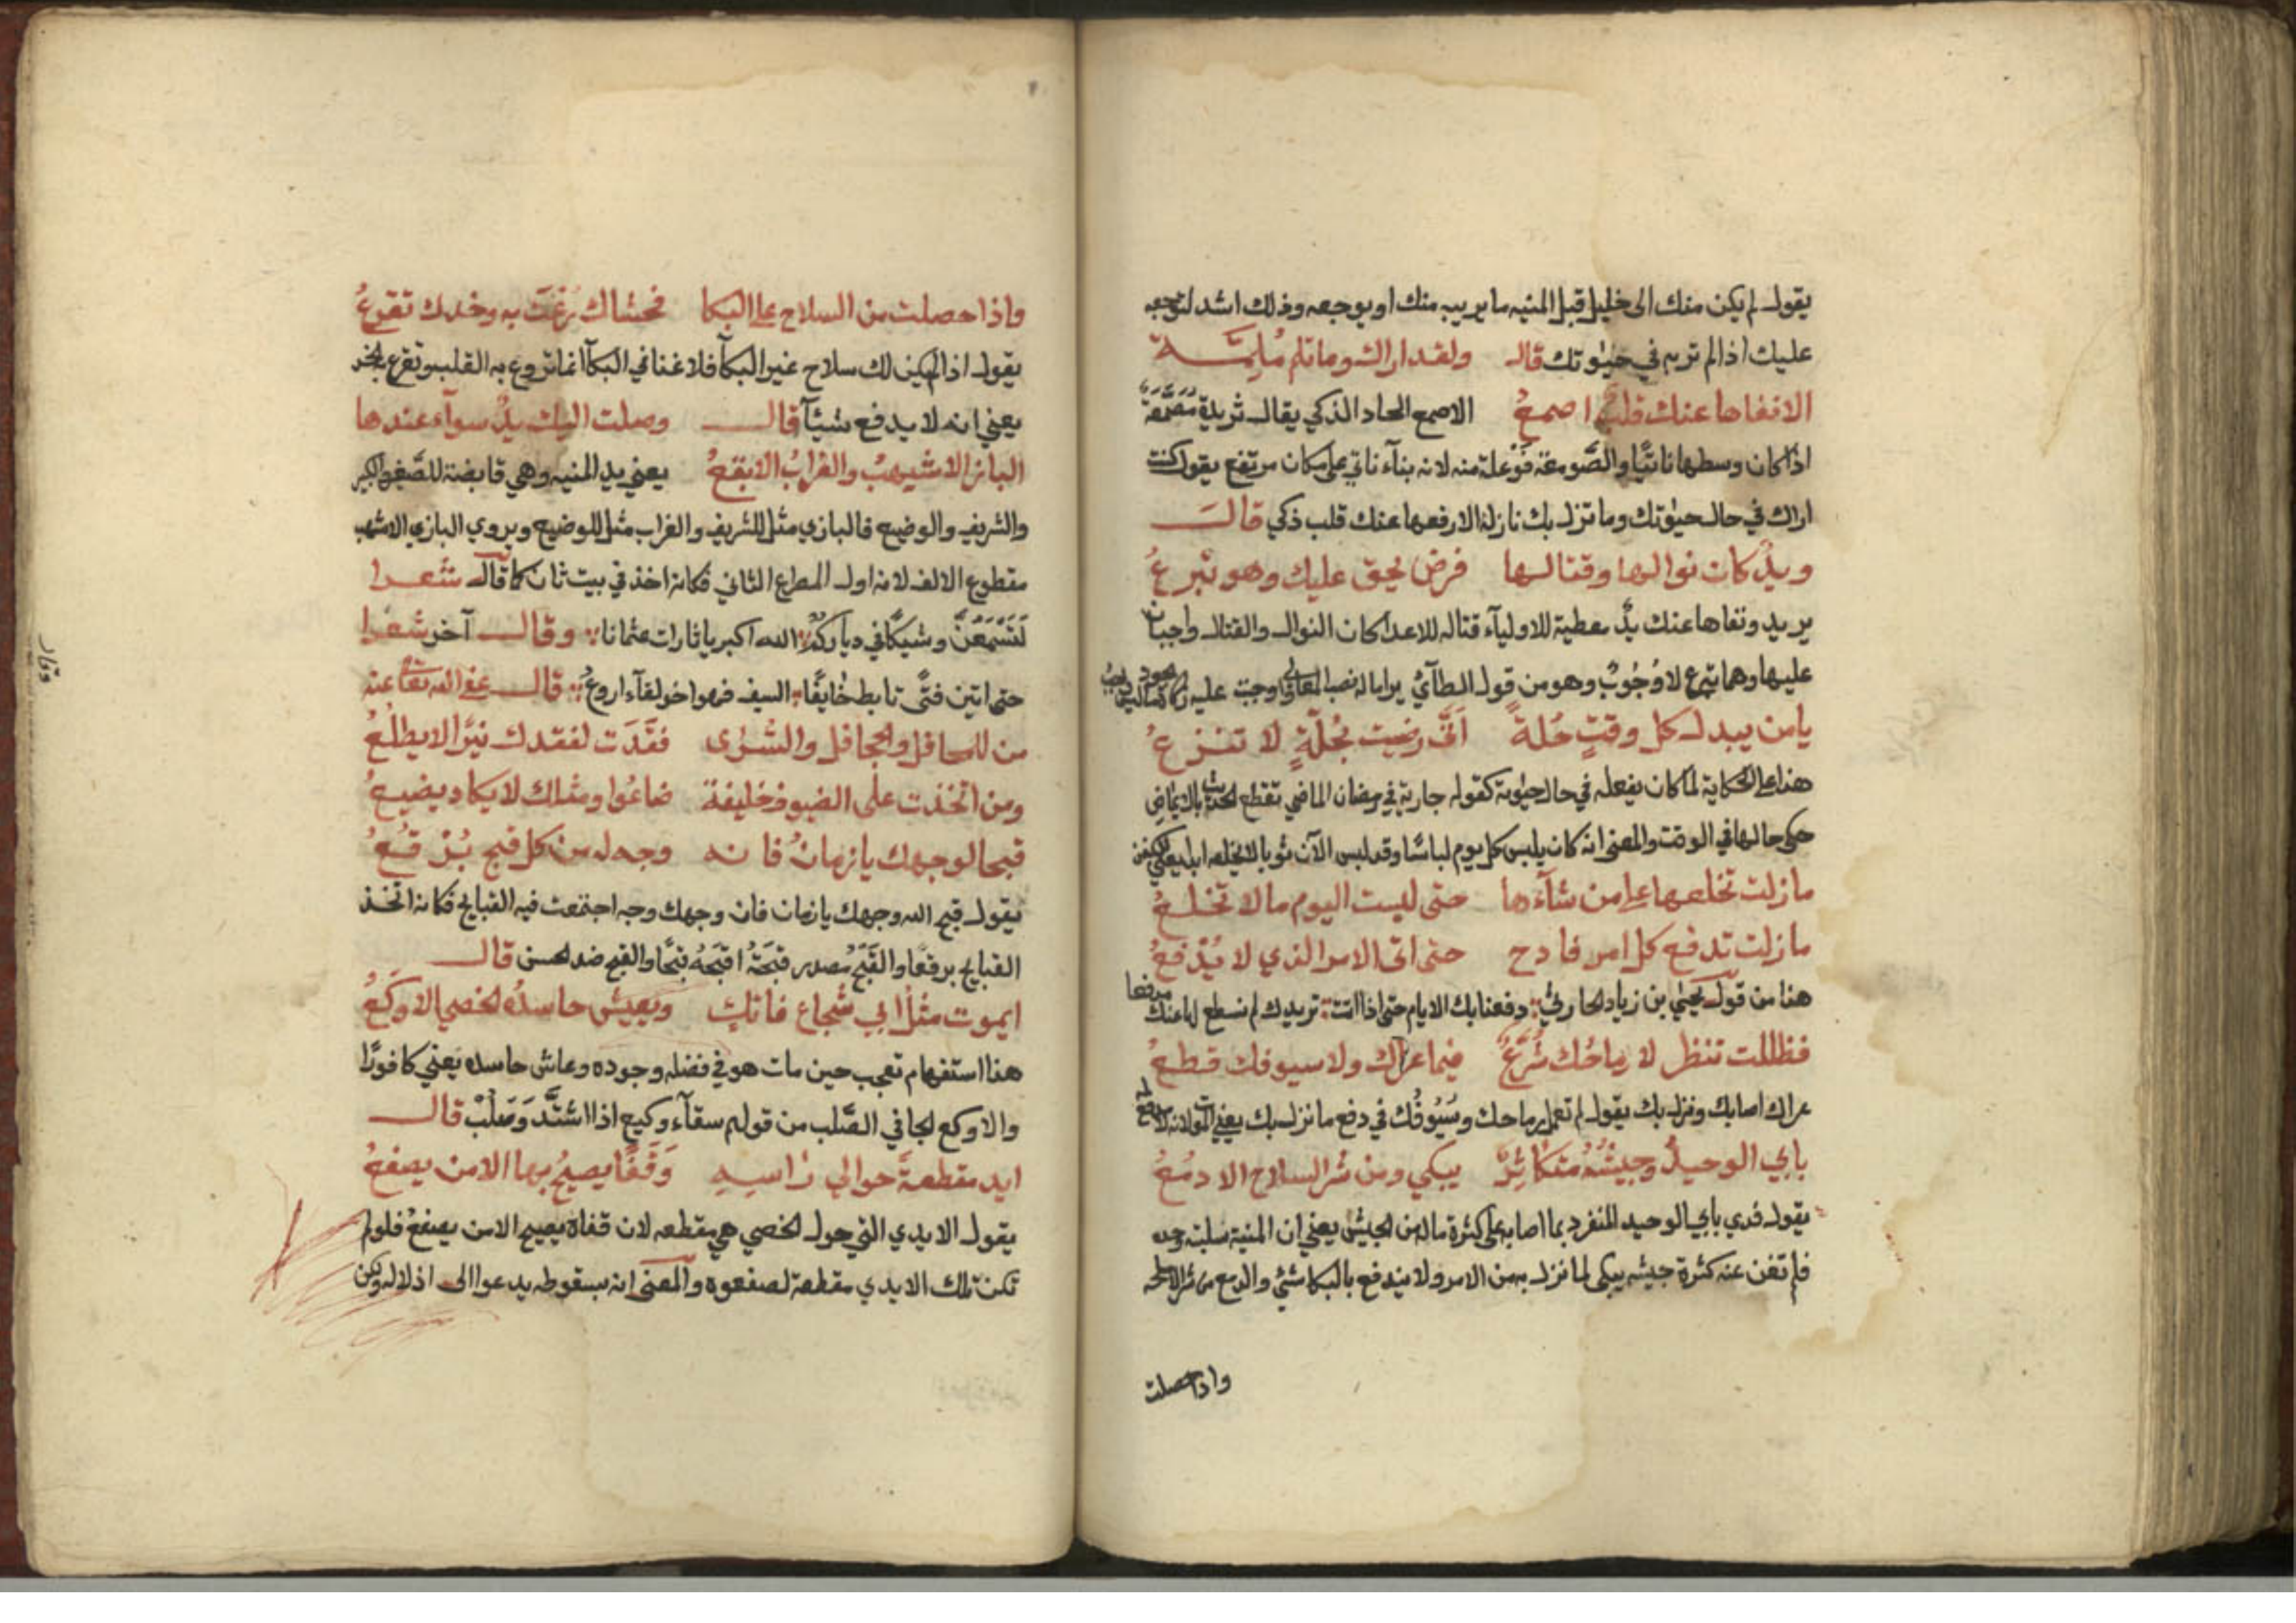 يقول لم يكن منك الى خليل قبل المنيه ما يريبه منك او يوجعه وذلك اشد لتوجعه
عليك اذا لم تربه في حيوتك قال ولقد اراك وما تلم ملمة
الا نفاها عنك قلب اصمع الاصمع الحاد الذكي يقال ثريدة مصمعة
اذا كان وسطها ناتيا والصومعة فوعلة منه لانه بناء ناتي على مكان مرتفع يقول كنت
اراك في حال حيوتك وما تنزل بك نازلة الا رفعها عنك قلب ذكي قال
ويد كان نوالها وقتالها فرض يحق عليك وهو تبرع
يريد ونفاها عنك يد معطية للاولياء قتاله للاعدا كان النوال والقتال واجبان
عليها وهما تبرع لا وجوب وهو من قول الطائي يرا ماله نصب المعالي واوجبت عليه زكاة الجود
يا من يبدل كل وقت حلة انى رضيت بحلة لا تنزع
هذا على الحكاية لما كان يفعله في حال حيوته كقوله جارية في رمضان الماضي تقطع الحديث بالايماض
حكى حالها في الوقت والمعنى انه كان يلبس كل يوم لباسا وقد لبس الآن ثوبا لا يخلعه ابدا يعني الكفن
ما زلت تخلعها على من شاءها حتى لبست اليوم ما لا تخلع
ما زلت تدفع كل امر فادح حتى اتى الامر الذي لا يدفع
هذا من قول يحيى بن زياد الحارثي دفعنا بك الايام حتى اذا اتت تريدك لم نسطع لها عنك مدفعا
فظللت تنظر لا رماحك شرع فيما عراك ولا سيوفك قطع
عراك اصابك ونزل بك يقول لم تعمل رماحك وسيوفك في دفع ما نزل بك يعني الموت لانه لا يدفع
بابي الوحيد وجيشه متكاثر يبكي ومن شر السلاح الادمع
يقول فدي بابي الوحيد المنفرد بما اصابه على كثرة ماله من الجيش يعني ان المنية سلبته وحده
فلم تغن عنه كثرة جيشه يبكي لما نزل به من الامر ولا يندفع بالبكا شئ والدمع من شر الاسلحه
واذا حصلت
واذا حصلت من السلاح على البكا فحشاك رغت به وخدك تقرع
يقول اذا لم يكن لك سلاح غير البكآ فلا غنا في البكآ انما تروع به القلب وتقرع الخد
يعني انه لا يدفع شيآ قال وصلت اليك يد سوآء عندها
الباز الاشيهب والغراب الابقع يعني يد المنيه وهي قابضة للصغير والكبير
والشريف والوضيع فالبازي مثل للشريف والغراب مثل للوضيع ويروي البازي الاشهب
مقطوع الالف لانه اول المصراع الثاني فكانه اخذ في بيت ثان كما قال شعرا
لتسمعن وشيكا في دياركم الله اكبر يا ثارات عثمانا وقال آخر شعرا
حتى اتين فتى تابط خايفا السيف فهوا خو لقآء اروع قال عفى الله تعا عنه
من للمحافل والجحافل والسرى فقدت لفقدك نيرا لا يطلع
ومن اتخذت على الضيوف خليفة ضاعوا ومثلك لا يكاد يضيع
قبحا لوجهك يا زمان فانه وجه له من كل قبح برقع
يقول قبح الله وجهك يا زمان فان وجهك وجه اجتمعت فيه القبايح فكانه اتخذ
القبايح برقعا والقبح مصدر قبحته اقبحه قبحا والقبح ضد الحسن قال
ايموت مثل ابي شجاع فاتك ويعيش حاسده الخصي الاوكع
هذا استفهام تعجب حين مات هو في فضله وجوده وعاش حاسده يعني كافورا
والاوكع الجافي الصلب من قولهم سقآء وكيع اذا اشتد وصلب قال
ايد مقطعة حوالي راسه وقفا يصيح بها الا من يصفع
يقول الايدي التي حول الخصي هي مقطعه لان قفاه يصيح الا من يصفع فلو لم
تكن تلك الايدي مقطعة لصفعوه والمعنى انه بسقوطه يدعوا الى اذلاله ولكن